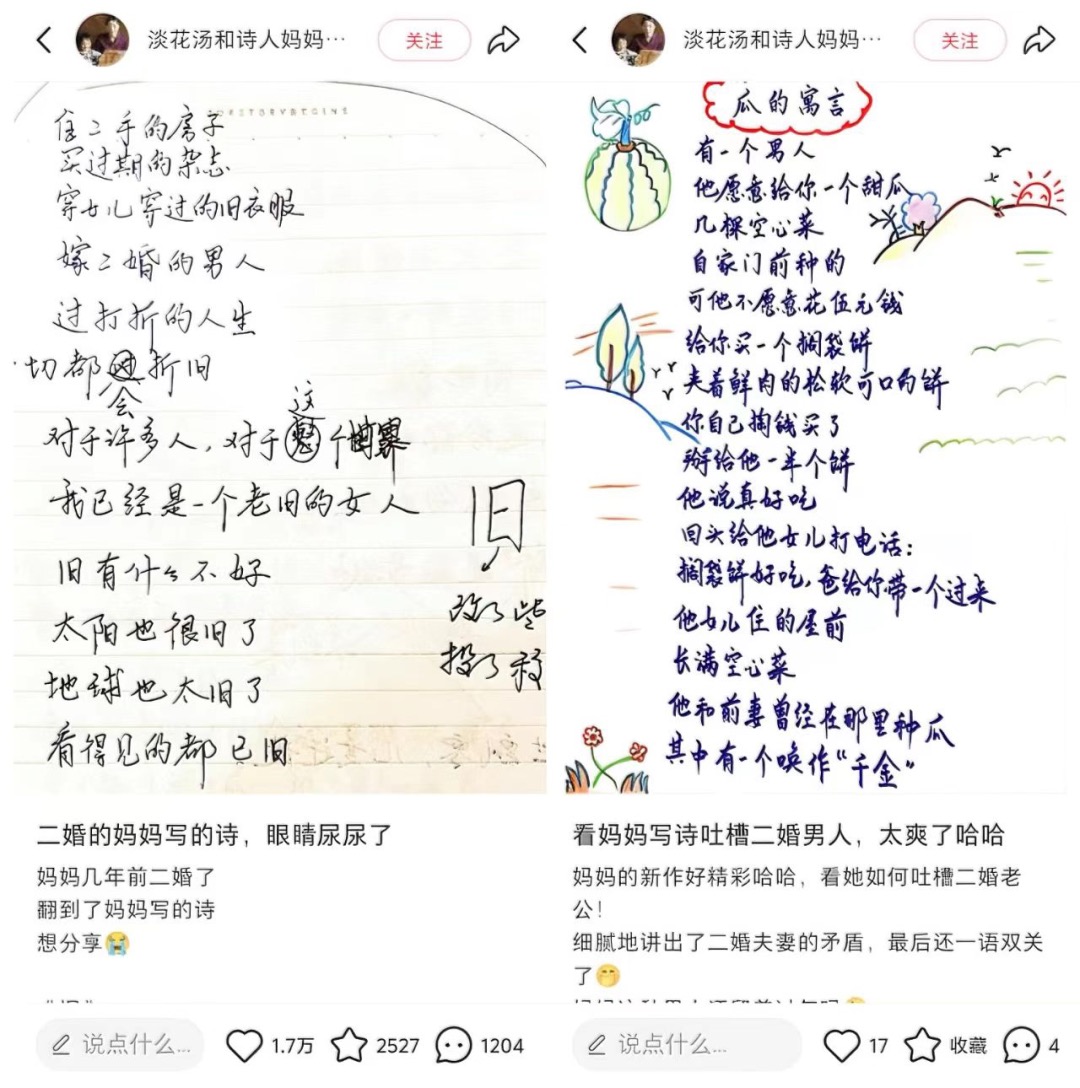 淡花汤和诗人妈妈…
关注
住二手的房子
买过期的杂志
穿女儿穿过的旧衣服
嫁二婚的男人
过打折的人生
切都会折旧
对于许多人，对于这个世界
我已经是一个老旧的女人
旧有什么不好
太阳也很旧了
地球也太旧了
看得见的都已旧
旧
改了些
投了稿
二婚的妈妈写的诗，眼睛尿尿了
妈妈几年前二婚了
翻到了妈妈写的诗
想分享😭
说点什么...
1.7万
2527
1204
淡花汤和诗人妈妈…
关注
瓜的寓言
有一个男人
他愿意给你一个甜瓜
几棵空心菜
自家门前种的
可他不愿意花伍元钱
给你买一个搁袋饼
夹着鲜肉的松软可口的饼
你自己掏钱买了
掰给他一半个饼
他说真好吃
回头给他女儿打电话：
搁袋饼好吃，爸给你带一个过来
他女儿住的屋前
长满空心菜
他和前妻曾经在那里种瓜
其中有一个唤作“千金”
看妈妈写诗吐槽二婚男人，太爽了哈哈
妈妈的新作好精彩哈哈，看她如何吐槽二婚老
公！
细腻地讲出了二婚夫妻的矛盾，最后还一语双关
了🤭
说点什么...
17
收藏
4